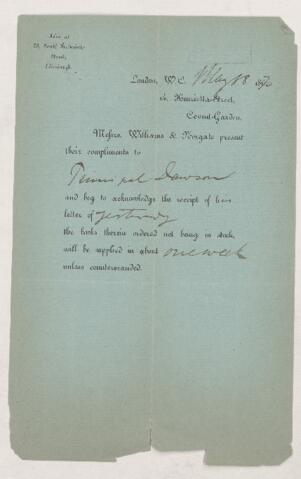 Also at
20, South Frederick
Street,
Edinburgh.
London, W.C. May 18 1870
14, Henrietta-Street,
Covent-Garden.
Messrs. Williams & Norgate present
their compliments to
Principal Dawson
and beg to acknowledge the receipt of
letter of yesterday
the books therein ordered not being in stock,
will be supplied in about one week
unless countermanded.